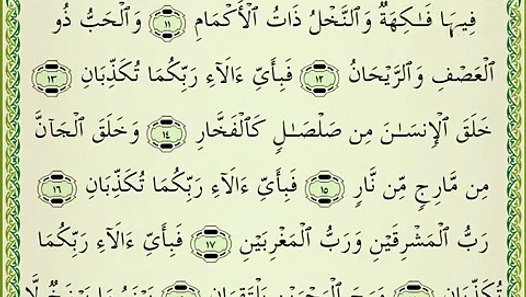 فِيهَا فَـٰكِهَةٌ وَٱلنَّخْلُ ذَاتُ ٱلْأَكْمَامِ ١١ وَٱلْحَبُّ ذُو
ٱلْعَصْفِ وَٱلرَّيْحَانُ ١٢ فَبِأَىِّ ءَالَآءِ رَبِّكُمَا تُكَذِّبَانِ ١٣
خَلَقَ ٱلْإِنسَـٰنَ مِن صَلْصَـٰلٍ كَٱلْفَخَّارِ ١٤ وَخَلَقَ ٱلْجَآنَّ
مِن مَّارِجٍ مِّن نَّارٍ ١٥ فَبِأَىِّ ءَالَآءِ رَبِّكُمَا تُكَذِّبَانِ ١٦
رَبُّ ٱلْمَشْرِقَيْنِ وَرَبُّ ٱلْمَغْرِبَيْنِ ١٧ فَبِأَىِّ ءَالَآءِ رَبِّكُمَا
تُكَذِّبَانِ مَرَجَ ٱلْبَحْرَيْنِ يَلْتَقِيَانِ بَيْنَهُمَا بَرْزَخٌ لَّا